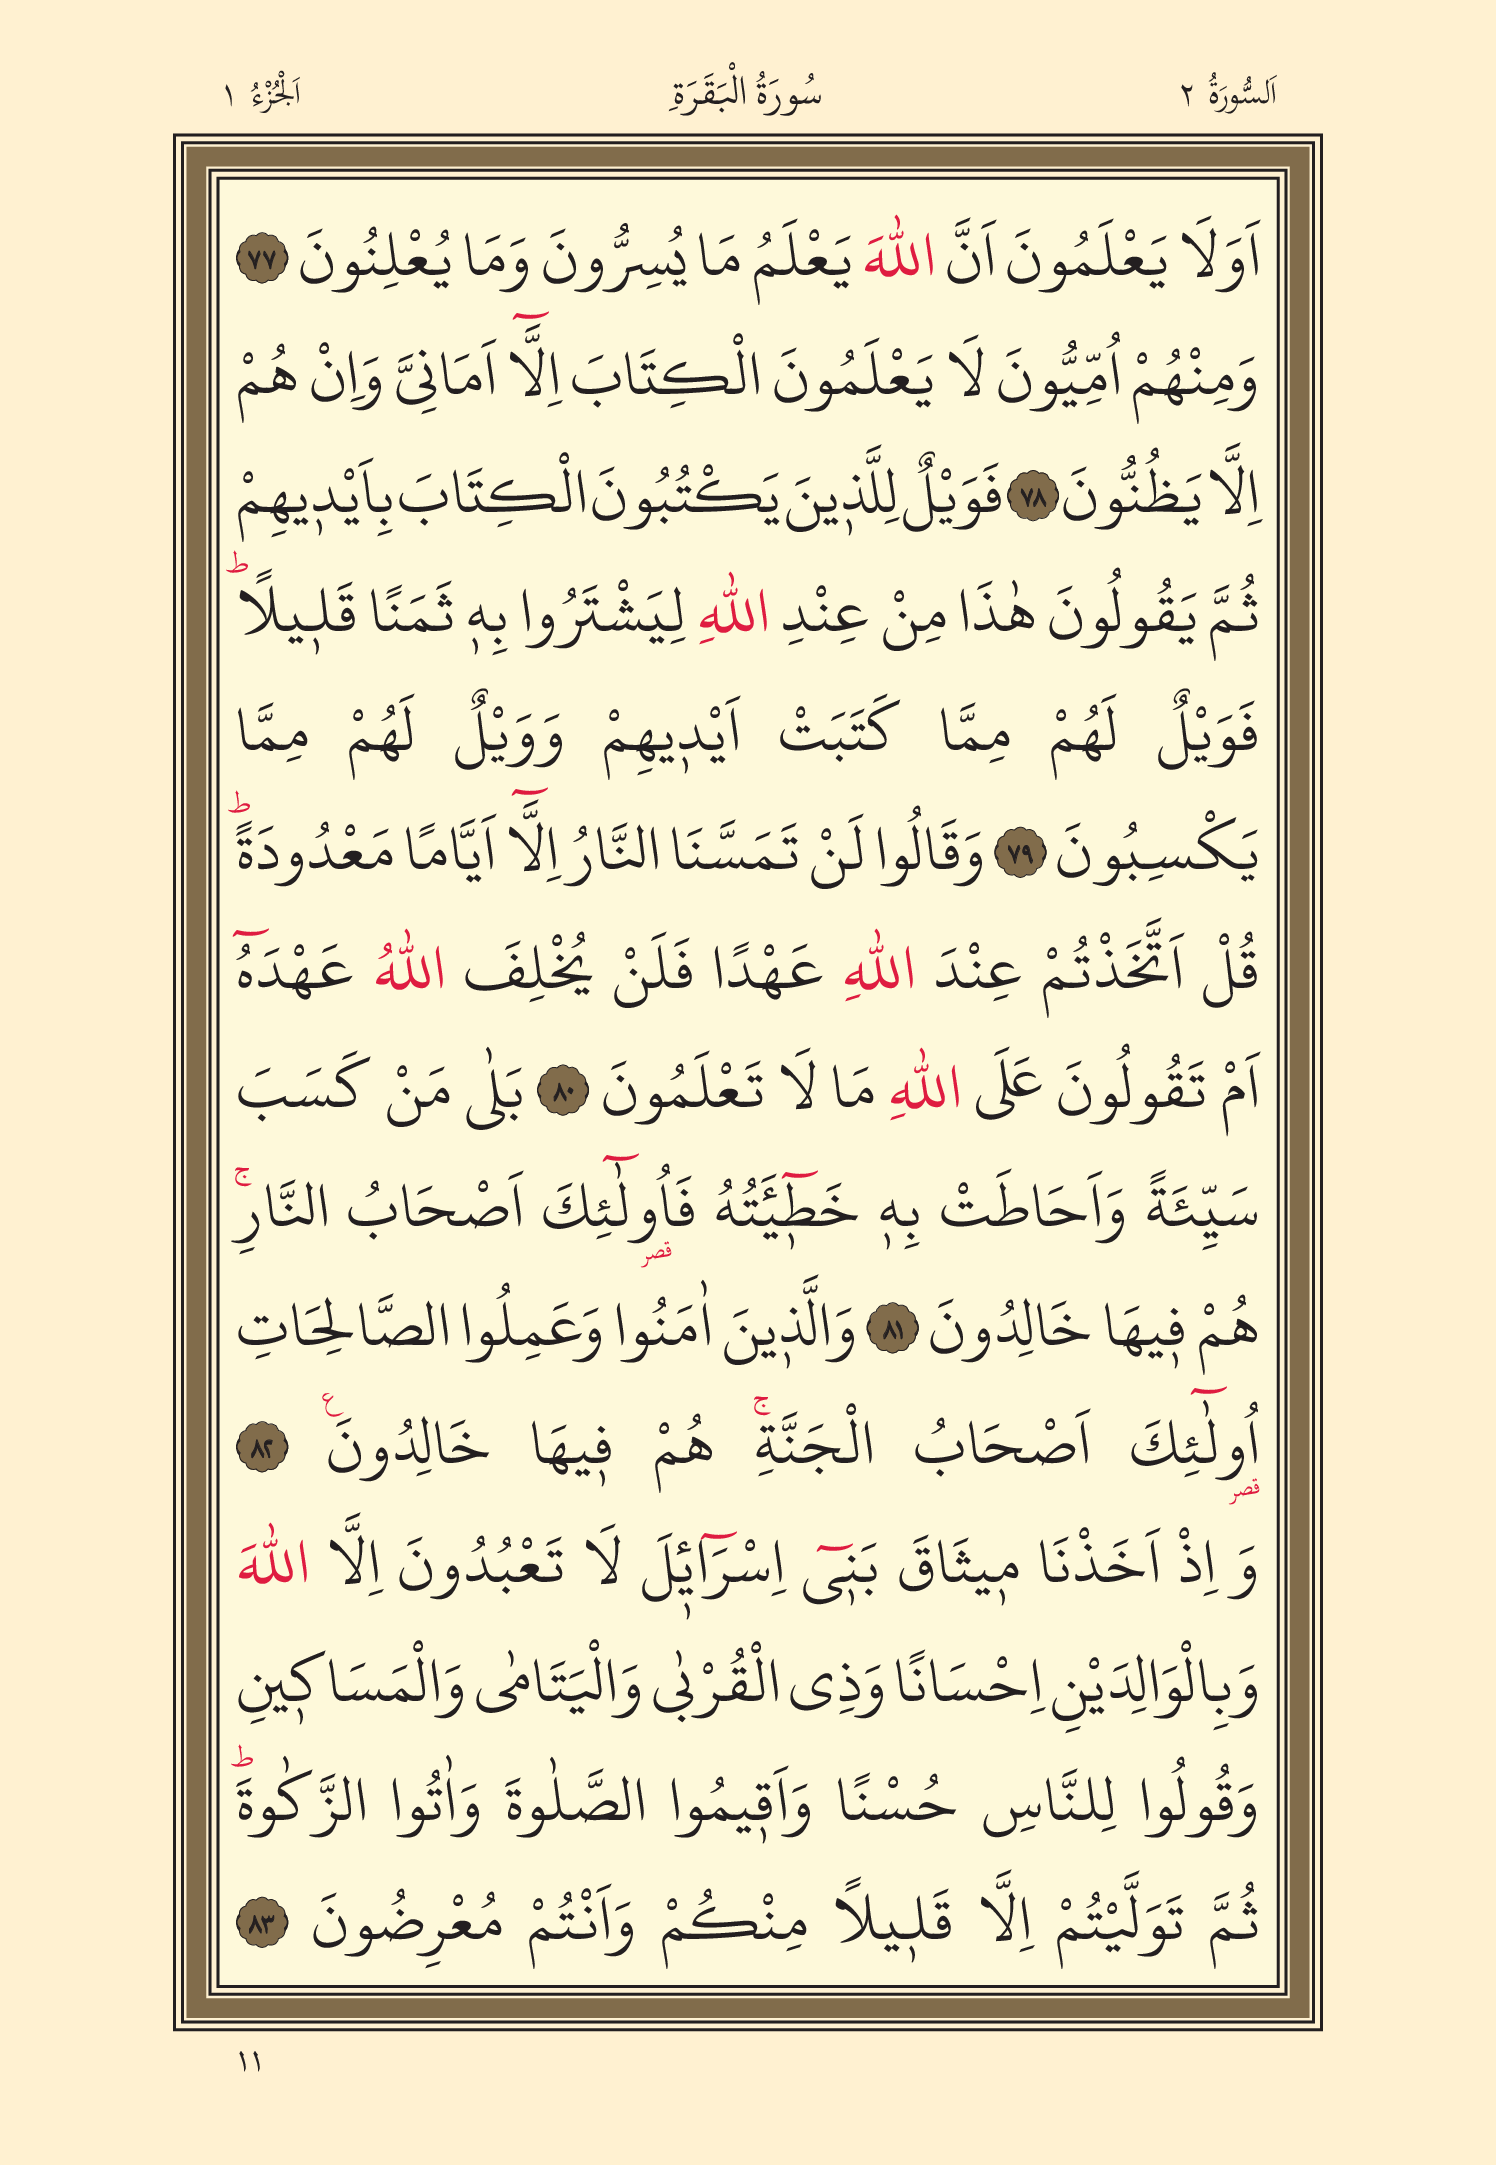 اَلسُّورَةُ ٢ سُورَةُ الْبَقَرَةِ اَلْجُزْءُ ١
اَوَلَا يَعْلَمُونَ اَنَّ اللّٰهَ يَعْلَمُ مَا يُسِرُّونَ وَمَا يُعْلِنُونَ ٧٧
وَمِنْهُمْ اُمِّيُّونَ لَا يَعْلَمُونَ الْكِتَابَ اِلَّٓا اَمَانِىَّ وَاِنْ هُمْ
اِلَّا يَظُنُّونَ ٧٨ فَوَيْلٌ لِلَّذ۪ينَ يَكْتُبُونَ الْكِتَابَ بِاَيْد۪يهِمْ
ثُمَّ يَقُولُونَ هٰذَا مِنْ عِنْدِ اللّٰهِ لِيَشْتَرُوا بِه۪ ثَمَنًا قَل۪يلًاۜ
فَوَيْلٌ لَهُمْ مِمَّا كَتَبَتْ اَيْد۪يهِمْ وَوَيْلٌ لَهُمْ مِمَّا
يَكْسِبُونَ ٧٩ وَقَالُوا لَنْ تَمَسَّنَا النَّارُ اِلَّٓا اَيَّامًا مَعْدُودَةًۜ
قُلْ اَتَّخَذْتُمْ عِنْدَ اللّٰهِ عَهْدًا فَلَنْ يُخْلِفَ اللّٰهُ عَهْدَهُٓ
اَمْ تَقُولُونَ عَلَى اللّٰهِ مَا لَا تَعْلَمُونَ ٨٠ بَلٰى مَنْ كَسَبَ
سَيِّئَةً وَاَحَاطَتْ بِه۪ خَط۪ٓيـَٔتُهُ فَاُو۬لٰٓئِكَ اَصْحَابُ النَّارِۚ
هُمْ ف۪يهَا خَالِدُونَ ٨١ وَالَّذ۪ينَ اٰمَنُوا وَعَمِلُوا الصَّالِحَاتِ
اُو۬لٰٓئِكَ اَصْحَابُ الْجَنَّةِۚ هُمْ ف۪يهَا خَالِدُونَ۟ ٨٢
وَ اِذْ اَخَذْنَا م۪يثَاقَ بَن۪ٓى اِسْرَٓائ۪لَ لَا تَعْبُدُونَ اِلَّا اللّٰهَ
وَبِالْوَالِدَيْنِ اِحْسَانًا وَذِى الْقُرْبٰى وَالْيَتَامٰى وَالْمَسَاك۪ينِ
وَقُولُوا لِلنَّاسِ حُسْنًا وَاَق۪يمُوا الصَّلٰوةَ وَاٰتُوا الزَّكٰوةَۜ
ثُمَّ تَوَلَّيْتُمْ اِلَّا قَل۪يلًا مِنْكُمْ وَاَنْتُمْ مُعْرِضُونَ ٨٣
١١